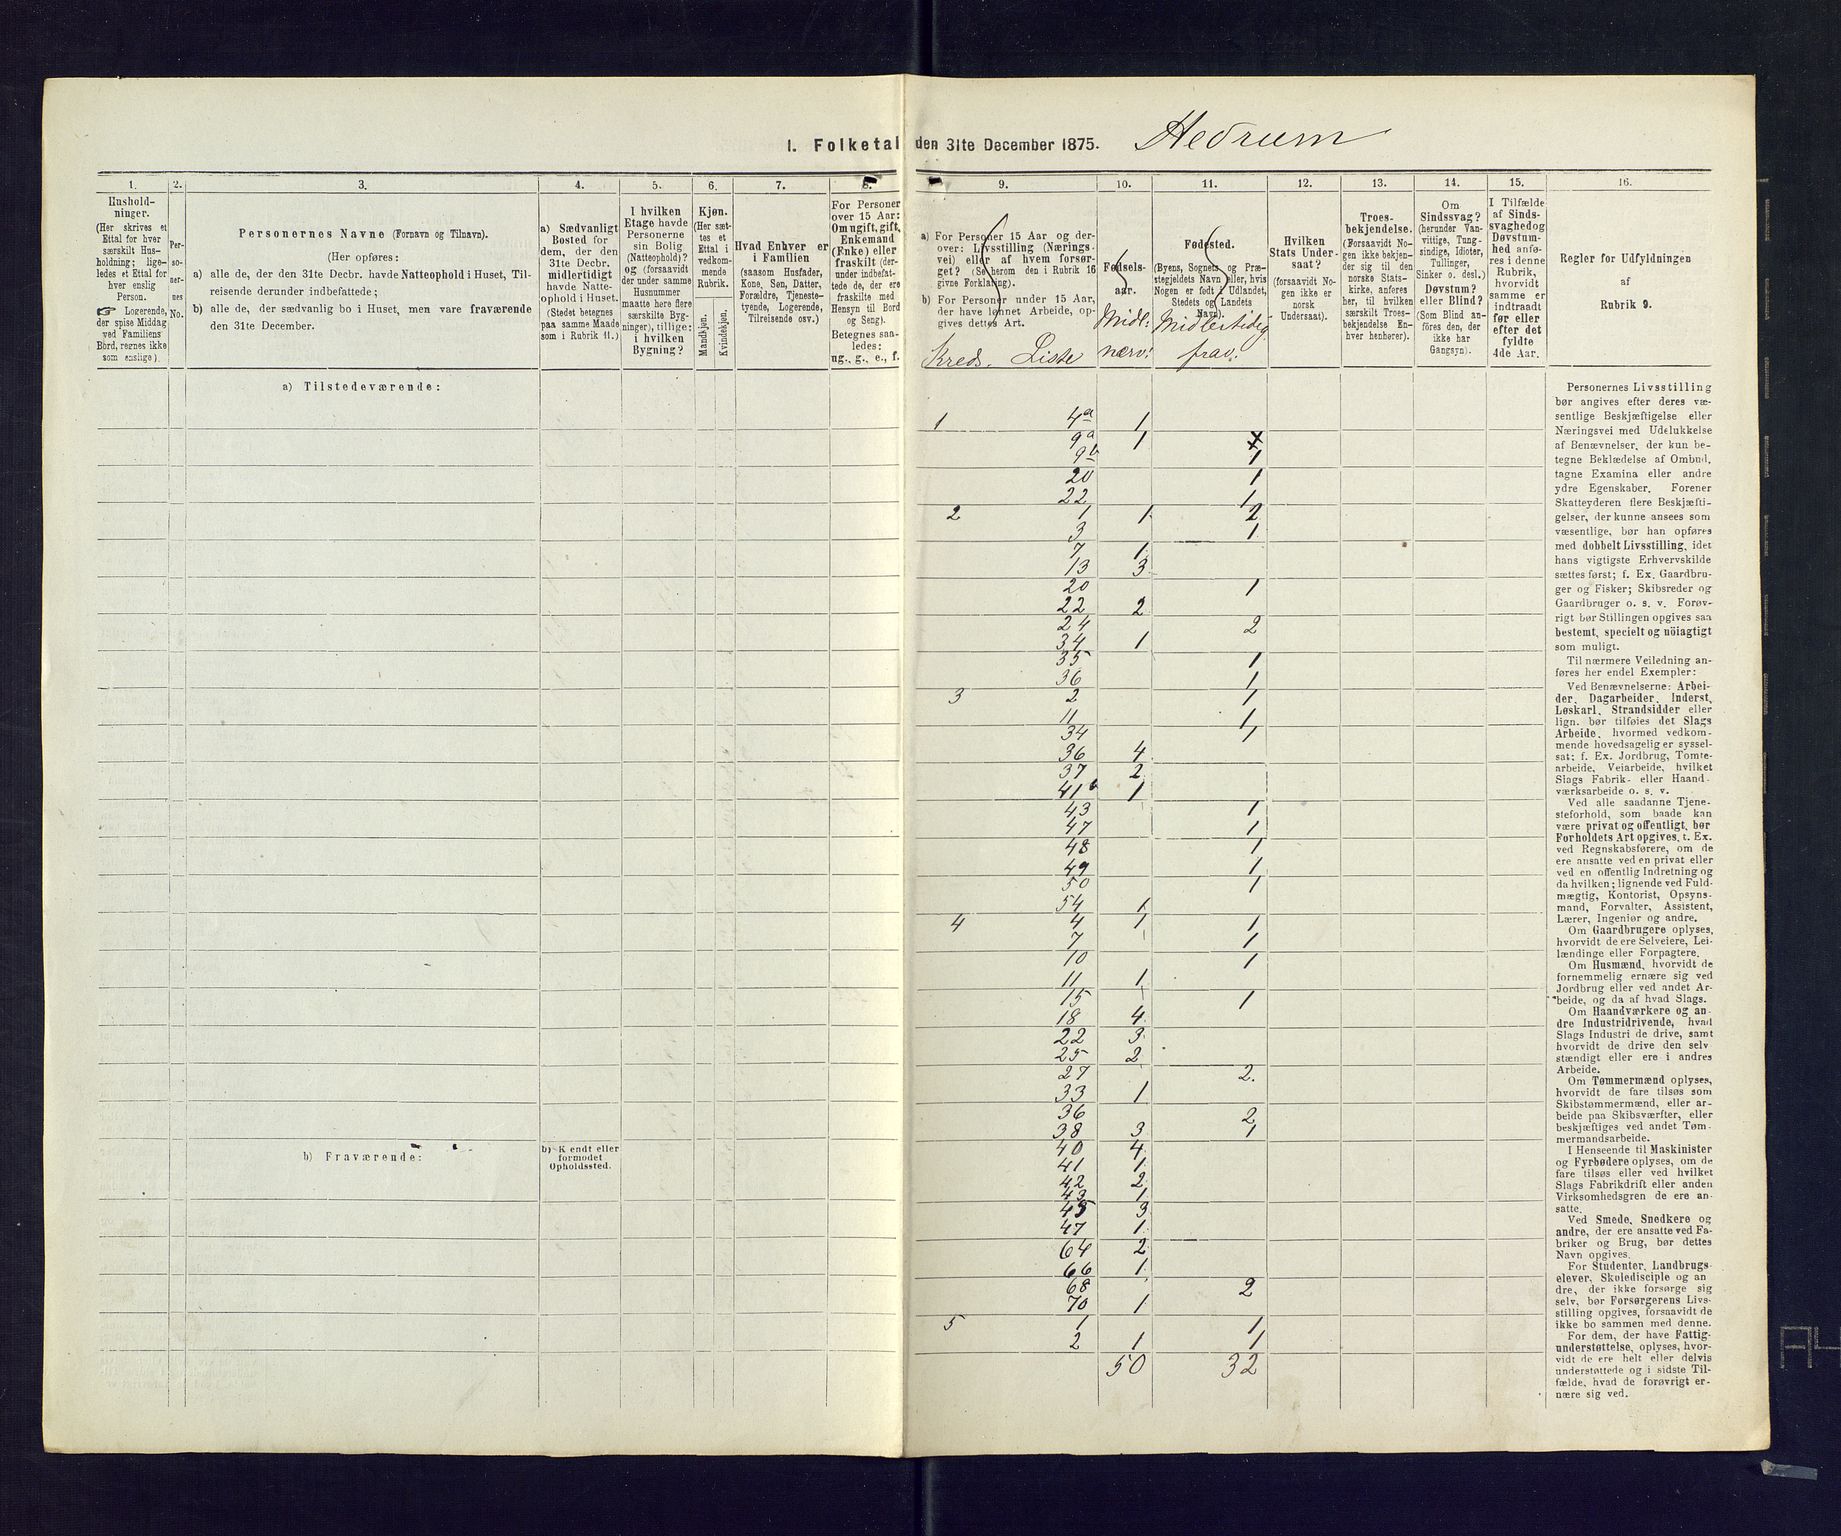 1. Folketal den 31te December 1875. Hedrum
1.
2.
3.
4.
5.
6.
7.
8.
9.
10.
11.
12.
13.
14.
15.
16.
Hushold-
ninger.
(Her skrives et
Ettal for hver
særskilt Hus-
holdning; lige-
ledes et Ettal for
hver enslig
Person.
☞ Logerende,
der spise Middag
ved Familiens
Bord, regnes ikke
som enslige).
Per-
so-
ner-
nes
No.
Personernes Navne (Fornavn og Tilnavn).
(Her opføres:
a) alle de, der den 31te Decbr. havde Natteophold i Huset, Til-
reisende derunder indbefattede;
b) alle de, der sædvanlig bo i Huset, men vare fraværende
den 31te December.
a) Sædvanligt
Bosted for
dem, der den
31te Decbr.
midlertidigt
havde Natte-
ophold i Huset.
(Stedet betegnes
paa samme Maade
som i Rubrik 11.)
I hvilken
Etage havde
Personerne
sin Bolig
(Natteophold)?
og (forsaavidt
der under samme
Husnummer
maatte høre flere
særskilte Byg-
ninger), tillige:
i hvilken
Bygning?
Kjøn.
(Her sæt-
tes et
Ettal i
vedkom-
mende
Rubrik.
Mandkjøn.
Kvindekjøn.
Hvad Enhver er
i Familien
(saasom Husfader,
Kone, Søn, Datter,
Forældre, Tjeneste-
tyende, Logerende,
Tilreisende osv.)
For Personer
over 15 Aar:
Om ugift, gift,
Enkemand
(Enke) eller
fraskilt (der-
under indbefat-
tede de, der ere
fraskilte med
Hensyn til Bord
og Seng).
Betegnes saa-
ledes:
ug., g., e., f.
a) For Personer 15 Aar og der-
over: Livsstilling (Nærings-
vei) eller af hvem forsør-
get? (Se herom den i Rubrik 16
givne Forklaring).
b) For Personer under 15 Aar,
der have lønnet Arbeide, op-
gives dettes Art.
Kreds. Liste
Fødsels-
aar.
Midl:
nærv:
Fødested.
(Byens, Sognets og Præ-
stegjeldets Navn eller, hvis
Nogen er født i Udlandet,
Stedets og Landets
Navn).
Midlertidig
frav:
Hvilken
Stats Under-
saat?
(forsaavidt No-
gen ikke er
norsk
Undersaat).
Troes-
bekjendelse.
(Forsaavidt No-
gen ikke bekjen-
der sig til den
norske Stats-
kirke, anføres
her, til hvilken
særskilt Troes-
bekjendelse En-
hver henhører).
Om
Sindssvag?
(herunder Van-
vittige, Tung-
sindige, Idioter,
Tullinger,
Sinker o. desl.)
Døvstum?
eller Blind?
(Som Blind an-
føres den, der
ikke har
Gangsyn).
I Tilfælde
af Sinds-
svaghed og
Døvstum-
hed anfø-
res i denne
Rubrik,
hvorvidt
samme er
indtraadt
før eller
efter det
fyldte
4de Aar.
Regler for Udfyldningen
af
Rubrik 9.
a) Tilstedeværende:
1 4a 1
9a 1
9b 1
20 1
22 1
2 1 1 2
3 1
7 1
13 3
20 1
22 2
24 2
34 1
35 1
36 1
3 2 1
11 1
34 1
36 4
37 2
41b 1
43 1
47 1
48 1
49 1
50 1
54 1
4 4 1 1
7 1
10 1
11 1
15 1
18 4
22 3
25 2
27 2.
33 1
36 2
38 3 1
40 4
41 1
42 2
43 1
45 3
47 1
64 2
66 1
68 2
70 1
5 1 1
2 1 1
50 32
b) Fraværende:
b) Kendt eller
formodet
Opholdssted.
Personernes Livsstilling
bør angives efter deres væ-
sentlige Beskjæftigelse eller
Næringsvei med Udelukkelse
af Benævnelser, der kun be-
tegne Beklædelse af Ombud,
tagne Examina eller andre
ydre Egenskaber. Forener
Skatteyderen flere Beskjæfti-
gelser, der kunne ansees som
væsentlige, bør han opføres
med dobbelt Livsstilling, idet
hans vigtigste Erhvervskilde
sættes først; f. Ex. Gaardbru-
ger og Fisker; Skibsreder og
Gaardbruger o. s. v. Forøv-
rigt bør Stillingen opgives saa
bestemt, specielt og nöiagtigt
som muligt.
Til nærmere Veiledning an-
føres her endel Exempler:
Ved Benævnelserne: Arbei-
der, Dagarbeider, Inderst,
Løskarl, Strandsidder eller
lign. bør tilføies det Slags
Arbeide, hvormed vedkom-
mende hovedsagelig er syssel-
sat; f. Ex. Jordbrug, Tomte-
arbeide, Veiarbeide, hvilket
Slags Fabrik- eller Haand-
værksarbeide o. s. v.
Ved alle saadanne Tjene-
steforhold, som baade kan
være privat og offentligt, bør
Forholdets Art opgives, t. Ex.
ved Regnskabsførere, om de
ere ansatte ved en privat eller
ved en offentlig Indretning og
da hvilken; lignende ved Fuld-
mægtig, Kontorist, Opsyns-
mand, Forvalter, Assistent,
Lærer, Ingeniør og andre.
Om Gaardbrugere oplyses,
hvorvidt de ere Selveiere, Lei-
lændinge eller Forpagtere.
Om Husmænd, hvorvidt de
fornemmelig ernære sig ved
Jordbrug eller ved andet Ar-
beide, og da af hvad Slags.
Om Haandværkere og an-
dre Industridrivende, hvad
Slags Industri de drive, samt
hvorvidt de drive den selv
stændigt eller ere i andres
Arbeide.
Om Tømmermænd oplyses,
hvorvidt de fare tilsøs som
Skibstømmermænd, eller ar-
beide paa Skibsværfter, eller
beskjæftiges ved andet Tøm-
mermandsarbeide.
I Henseende til Maskinister
og Fyrbødere oplyses, om de
fare tilsøs eller ved hvilket
Slags Fabrikdrift eller anden
Virksomhedsgren de ere an-
satte.
Ved Smede, Snedkere og
andre, der ere ansatte ved Fa-
briker og Brug, bør dettes
Navn opgives.
For Studenter, Landbrugs-
elever, Skoledisciple og an
dre, der ikke forsørge sig
selv, bør Forsørgerens Livs-
stilling opgives, forsaavidt de
ikke bo sammen med denne.
For dem, der have Fattig-
understøttelse, oplyses, hvor-
vidt de ere helt eller delvis
understøttede og i sidste Til-
fælde, hvad de forøvrigt er-
nære sig ved.